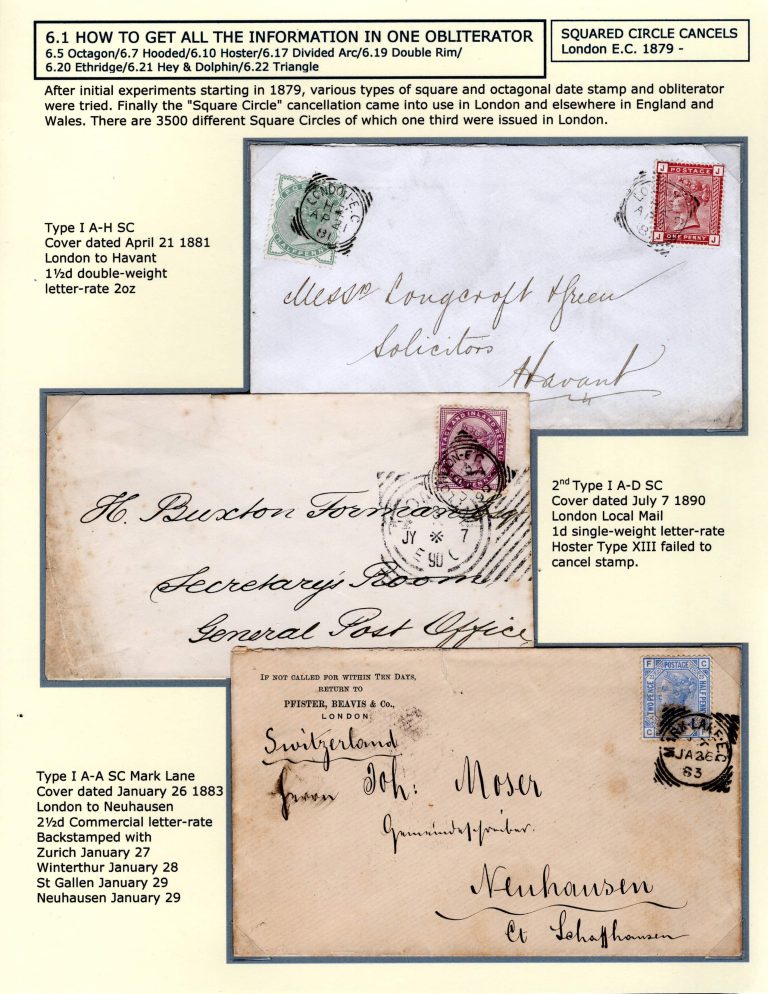 6.1 HOW TO GET ALL THE INFORMATION IN ONE OBLITERATOR
6.5 Octagon/6.7 Hooded/6.10 Hoster/6.17 Divided Arc/6.19 Double Rim/
6.20 Ethridge/6.21 Hey & Dolphin/6.22 Triangle
SQUARED CIRCLE CANCELS
London E.C. 1879 -
After initial experiments starting in 1879, various types of square and octagonal date stamp and obliterator
were tried. Finally the "Square Circle" cancellation came into use in London and elsewhere in England and
Wales. There are 3500 different Square Circles of which one third were issued in London.
Type I A-H SC
Cover dated April 21 1881
London to Havant
1½d double-weight
letter-rate 2oz
LONDON-E.C
AP 21
81
POSTAGE
ONE PENNY
J J
J J
Messrs Longcroft & Green
Solicitors
Havant
POSTAGE AND INLAND REVENUE
JY 7
E C
90
H. Buxton Forman Esq
Secretary's Room
General Post Office
2nd Type I A-D SC
Cover dated July 7 1890
London Local Mail
1d single-weight letter-rate
Hoster Type XIII failed to
cancel stamp.
IF NOT CALLED FOR WITHIN TEN DAYS,
RETURN TO
PFISTER, BEAVIS & Co.,
LONDON.
F POSTAGE C
TWO PENCE HALF PENNY
C
MARK-LANE-E.C
JA 26
83
Switzerland
Herrn Joh: Moser
Gemeindeschreiber.
Neuhausen
Ct Schaffhausen
Type I A-A SC Mark Lane
Cover dated January 26 1883
London to Neuhausen
2½d Commercial letter-rate
Backstamped with
Zurich January 27
Winterthur January 28
St Gallen January 29
Neuhausen January 29